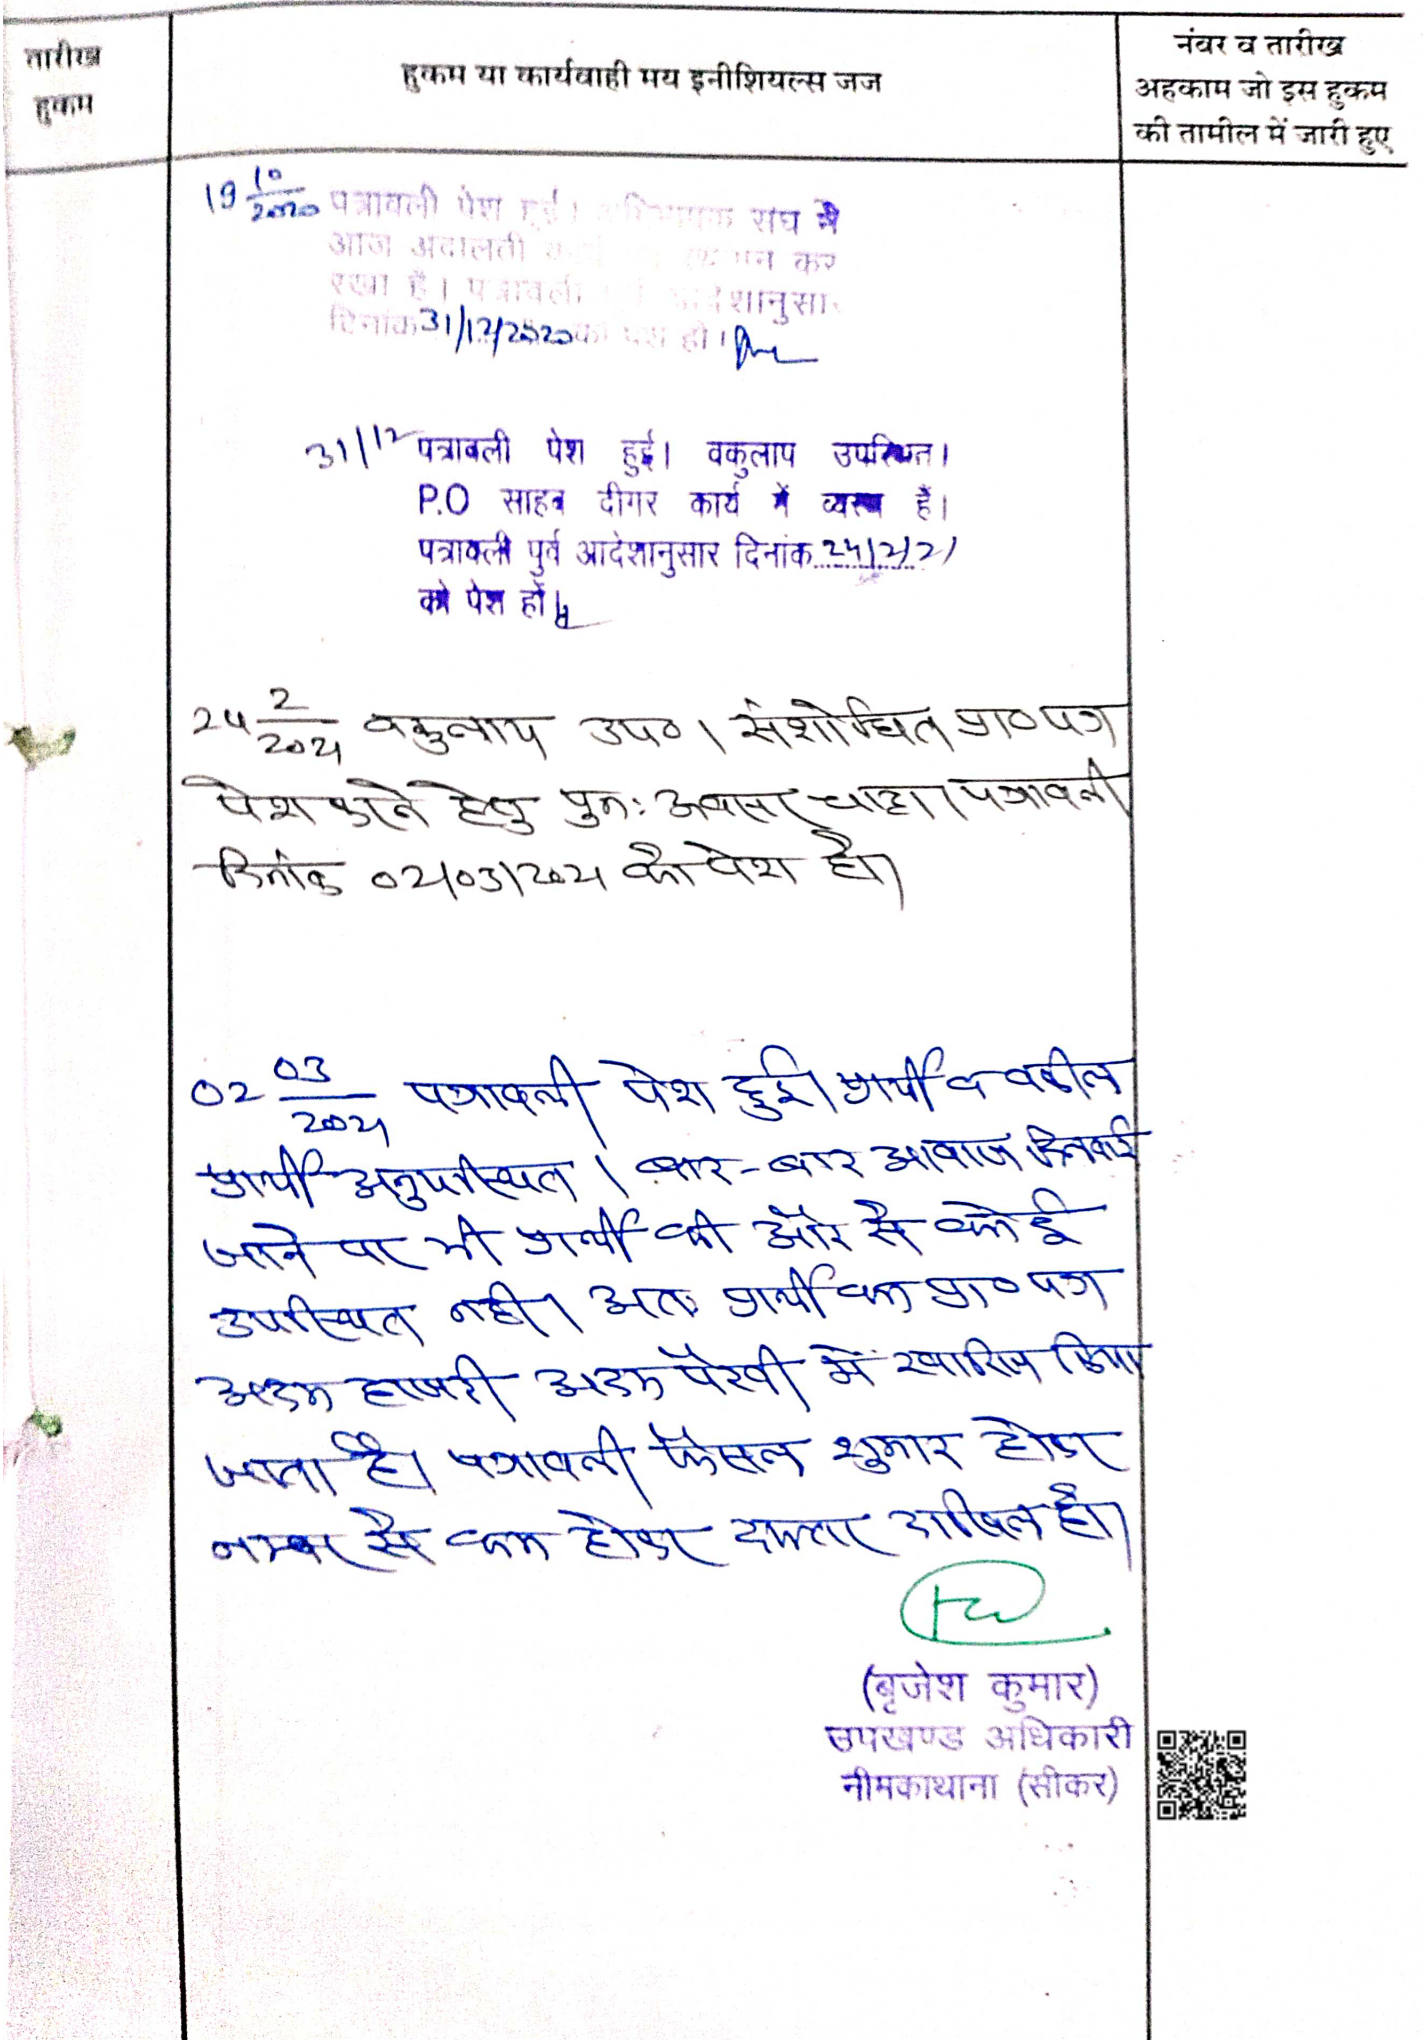 तारीख
हुकम
हुकम या कार्यवाही मय इनीशियल्स जज
नंबर व तारीख
अहकाम जो इस हुकम
की तामील में जारी हुए
19 10/2020 पत्रावली पेश हुई। अभिभाषक संघ ने
आज अदालती कार्य का स्थगन कर
रखा है। पत्रावली पूर्व आदेशानुसार
दिनांक 31/12/2020 को पेश हो।
31/12 पत्रावली पेश हुई। वकुलाप उपस्थित।
P.O साहब दीगर कार्य में व्यस्त हैं।
पत्रावली पुर्व आदेशानुसार दिनांक 24/2/21
को पेश हों।
24 2/2021 वकुलाय उप०। संशोधित प्रा०पत्र
पेश करने हेतु पुनः अवसर चाहा। पत्रावली
दिनांक 02/03/2021 को पेश हो।
02 03/2021 पत्रावली पेश हुई। प्रार्थी व वकील
प्रार्थी अनुपस्थित। बार-बार आवाज दिलवाई
जाने पर भी प्रार्थी की ओर से कोई
उपस्थित नही। अतः प्रार्थी का प्रा०पत्र
अदम हाजरी अदम पैरवी में खारिज किया
जाता है। पत्रावली फैसल शुमार होकर
नम्बर से कम होकर दफ्तर दाखिल हो।
(बृजेश कुमार)
उपखण्ड अधिकारी
नीमकाथाना (सीकर)